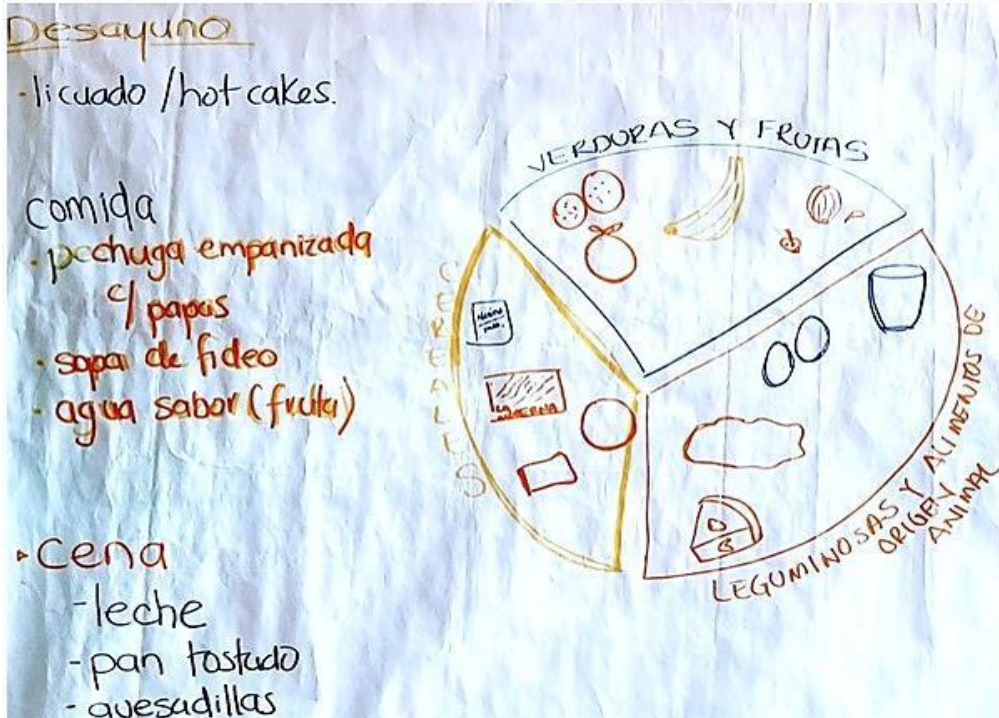 Desayuno
• licuado / hot cakes.
comida
• pechuga empanizada
c/ papas
• sopa de fideo
• agua sabor (fruta)
▸ Cena
- leche
- pan tostado
- quesadillas
VERDURAS Y FRUTAS
CEREALES
LEGUMINOSAS Y ALIMENTOS DE
ORIGEN
ANIMAL
LA MODERNA